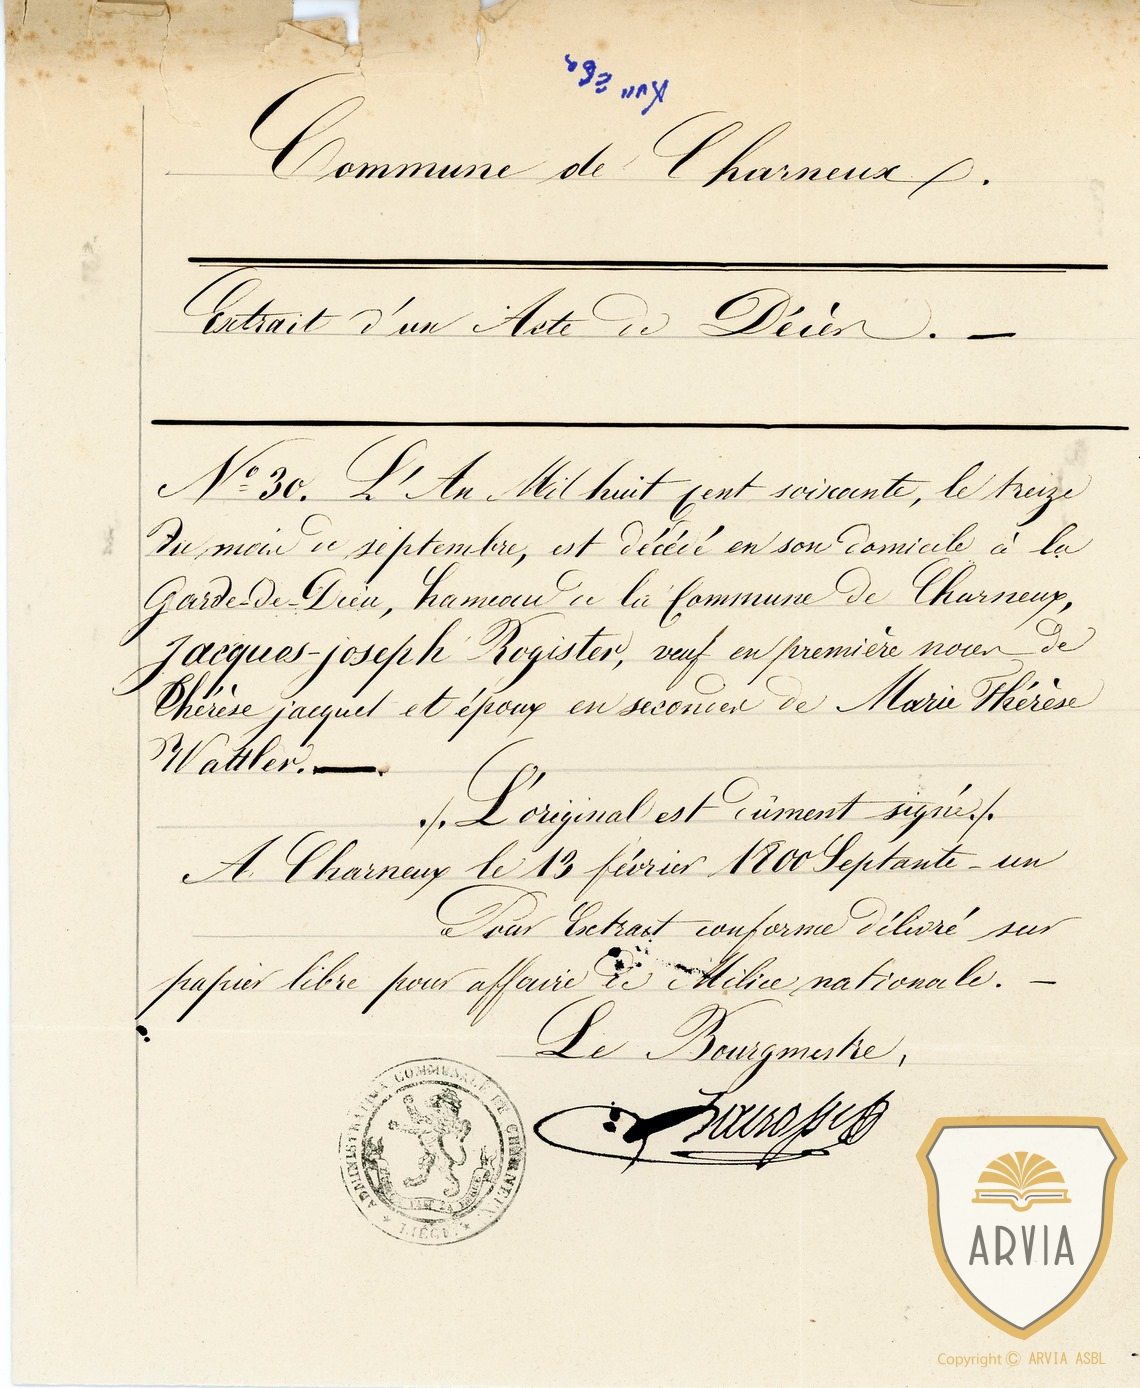 Commune de Charneux.
Extrait d'un Acte de Décès. —
N° 30. L'An Mil huit cent soixante, le treize
du mois de septembre, est décédé en son domicile à la
Garde-de-Dieu, hameau de la Commune de Charneux,
Jacques-joseph Rogister, veuf en première noces de
Thérèse jacquet et époux en secondes de Marie Thérèse
Wattler. —.
./. L'original est dûment signé./.
A Charneux le 13 février 1800 Septante-un
Pour Extrait conforme délivré sur
papier libre pour affaire de Milice nationale. —
Le Bourgmestre,
ADMINISTRATION COMMUNALE DE CHARNEUX
* LIÉGE *
ARVIA
Copyright © ARVIA ASBL